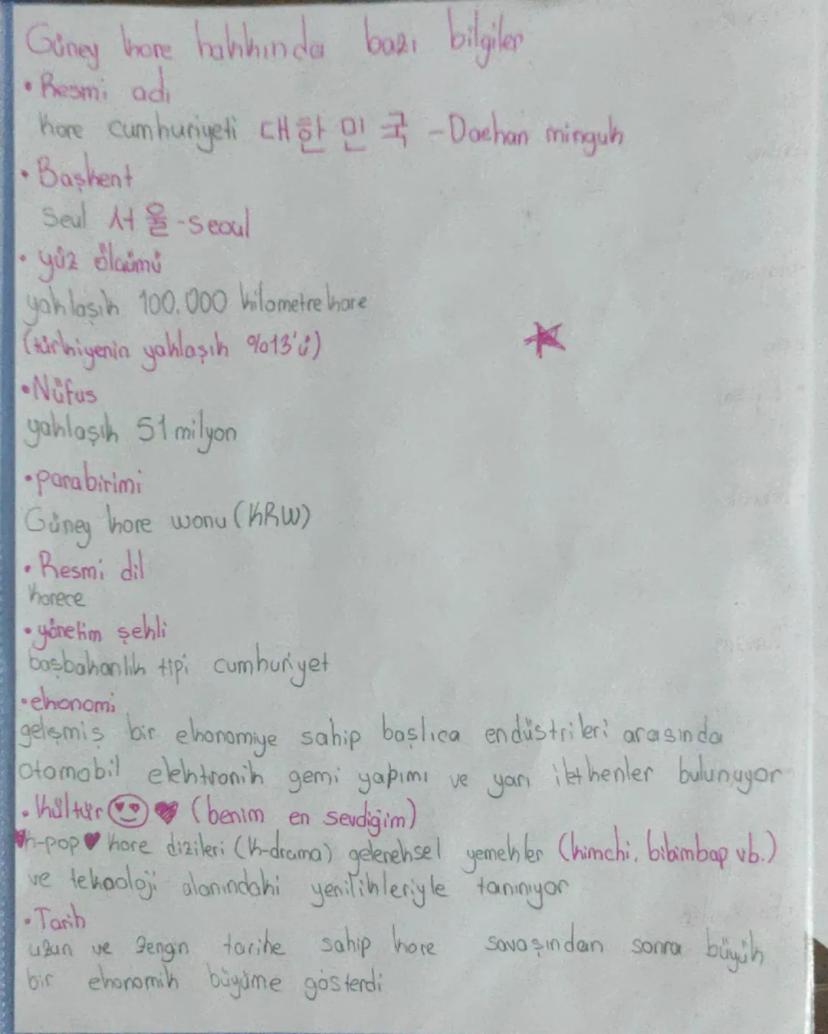 Güney kore hakkında bazı bilgiler
• Resmi adı
kore cumhuriyeti 대한민국 - Daehan minguk
• Başkent
Seul 서울 - seoul
• yüz ölçümü
yaklaşık 100.000 kilometrekare
(türkiyenin yaklaşık %13'ü)
• Nüfus
yaklaşık 51 milyon
• parabirimi
Güney kore wonu (KRW)
• Resmi dil
korece
• yönetim şekli
başbakanlık tipi cumhuriyet
• ekonomi
gelişmiş bir ekonomiye sahip başlıca endüstrileri arasında
otomobil elektronik gemi yapımı ve yarı iletkenler bulunuyor
• Kültür 😍 ♥ (benim en sevdiğim)
♥ k-pop ♥ kore dizileri (k-drama) geleneksel yemekler (kimchi, bibimbap vb.)
ve teknoloji alanındaki yenilikleriyle tanınıyor
• Tarih
uzun ve zengin tarihe sahip kore savaşından sonra büyük
bir ekonomik büyüme gösterdi